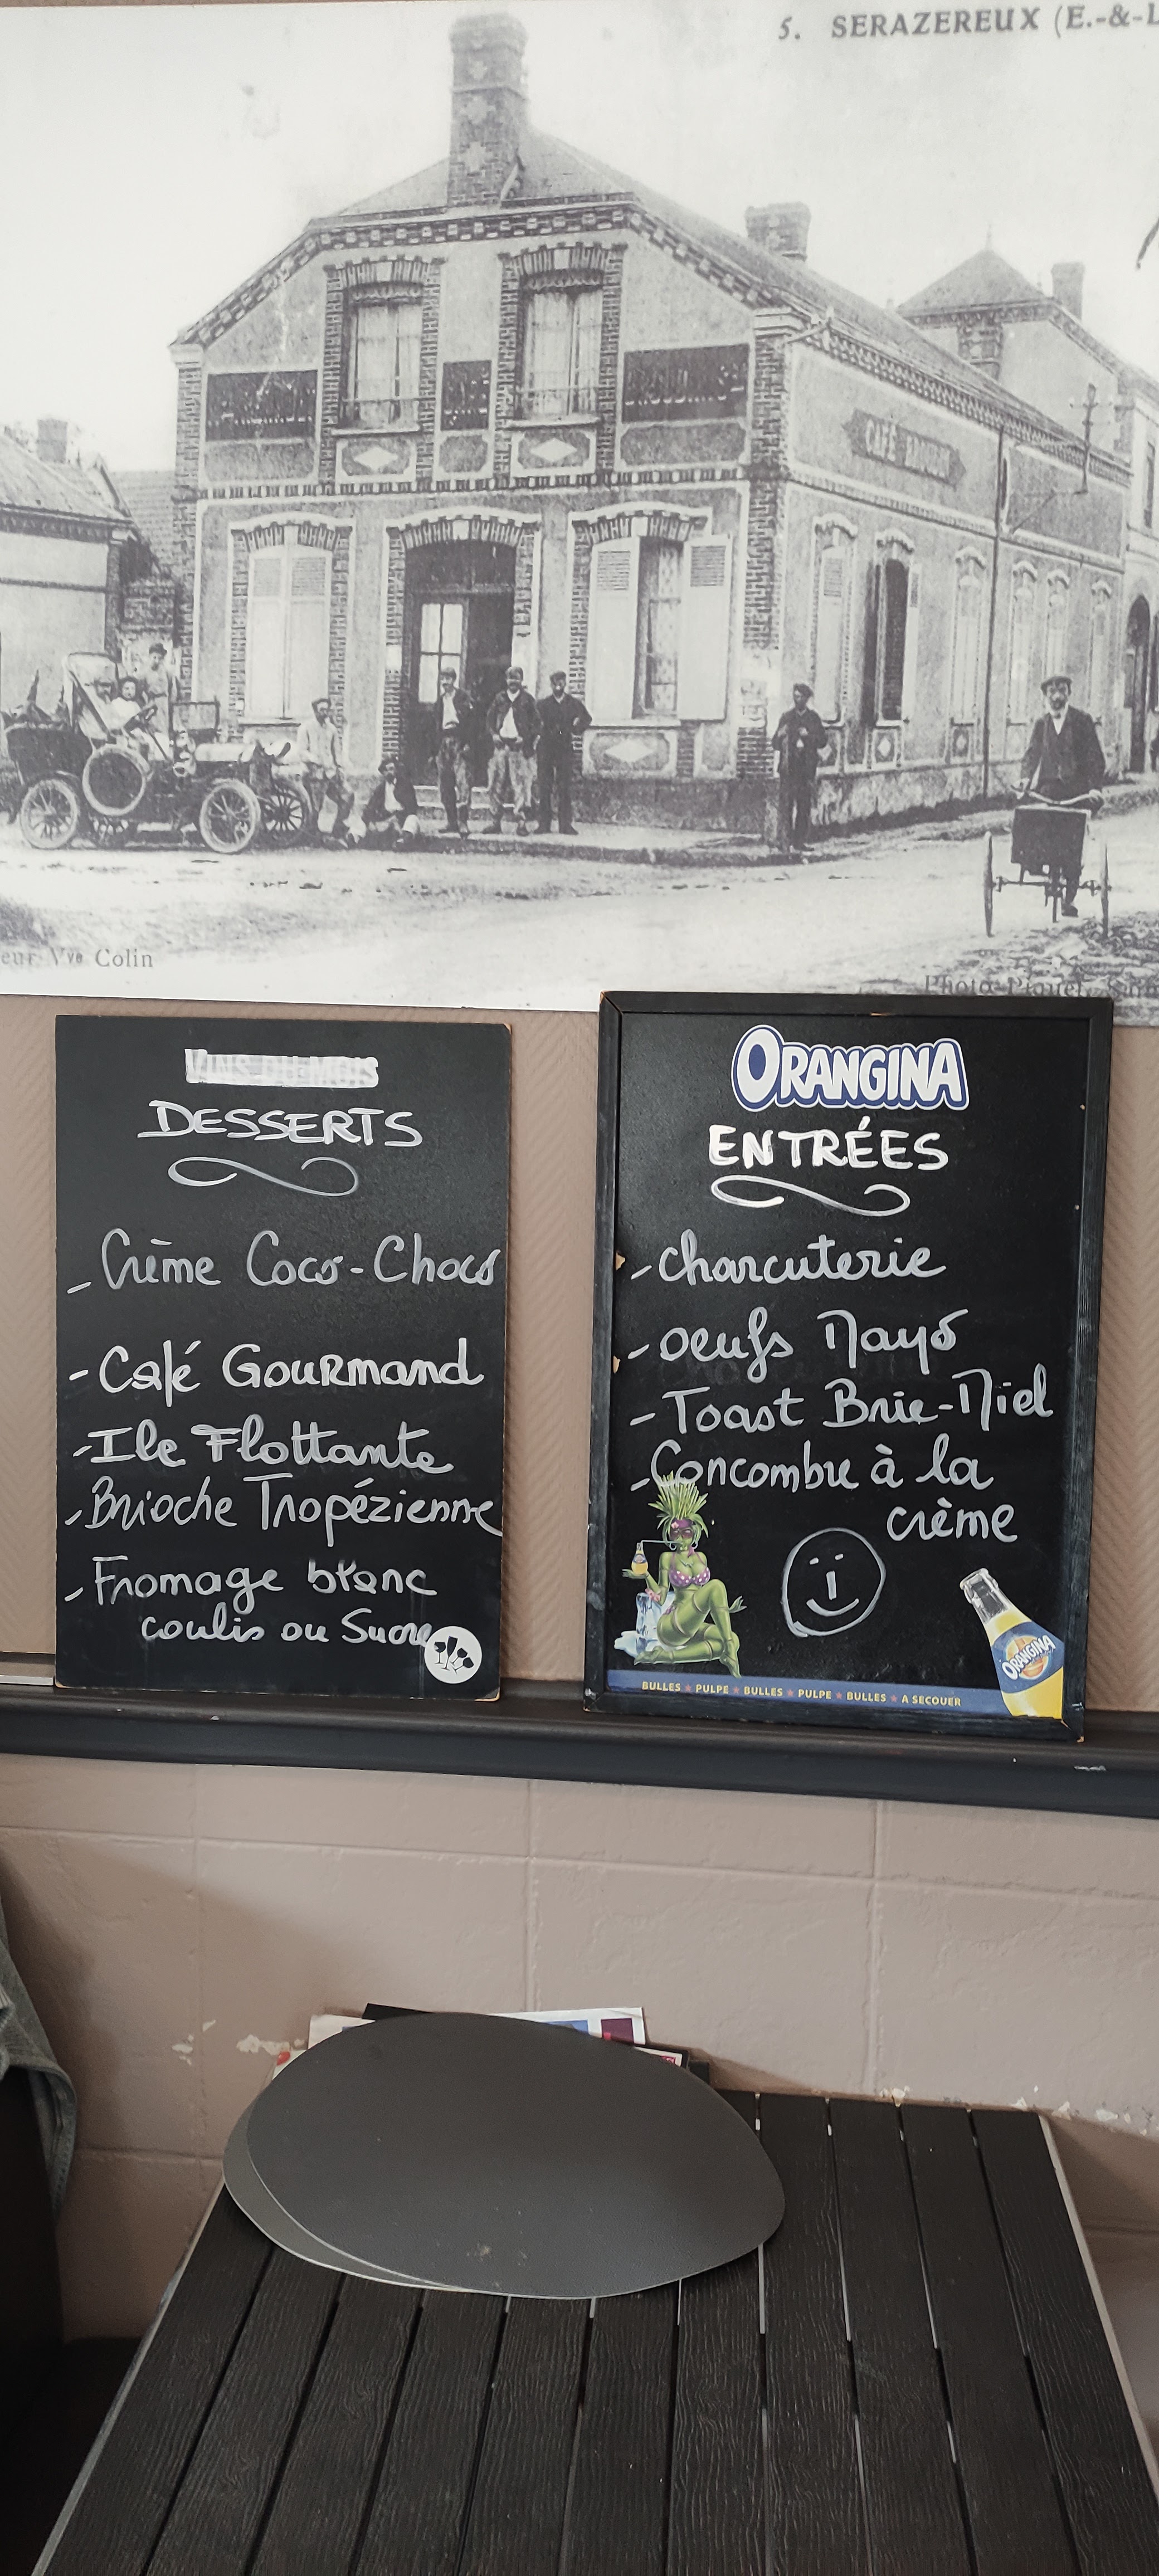 5. SERAZEREUX (E.-&-L
CAFÉ
eur Vve Colin
Photo Piquet,
VINS DU MOIS
DESSERTS
- Crème Coco-Choco
- Café Gourmand
- Ile Flottante
- Brioche Tropézienne
- Fromage blanc
coulis ou Sucre
ORANGINA
ENTRÉES
- charcuterie
- oeufs Mayo
- Toast Brie-Miel
- Concombre à la
crème
ORANGINA
BULLES ★ PULPE ★ BULLES ★ PULPE ★ BULLES ★ A SECOUER